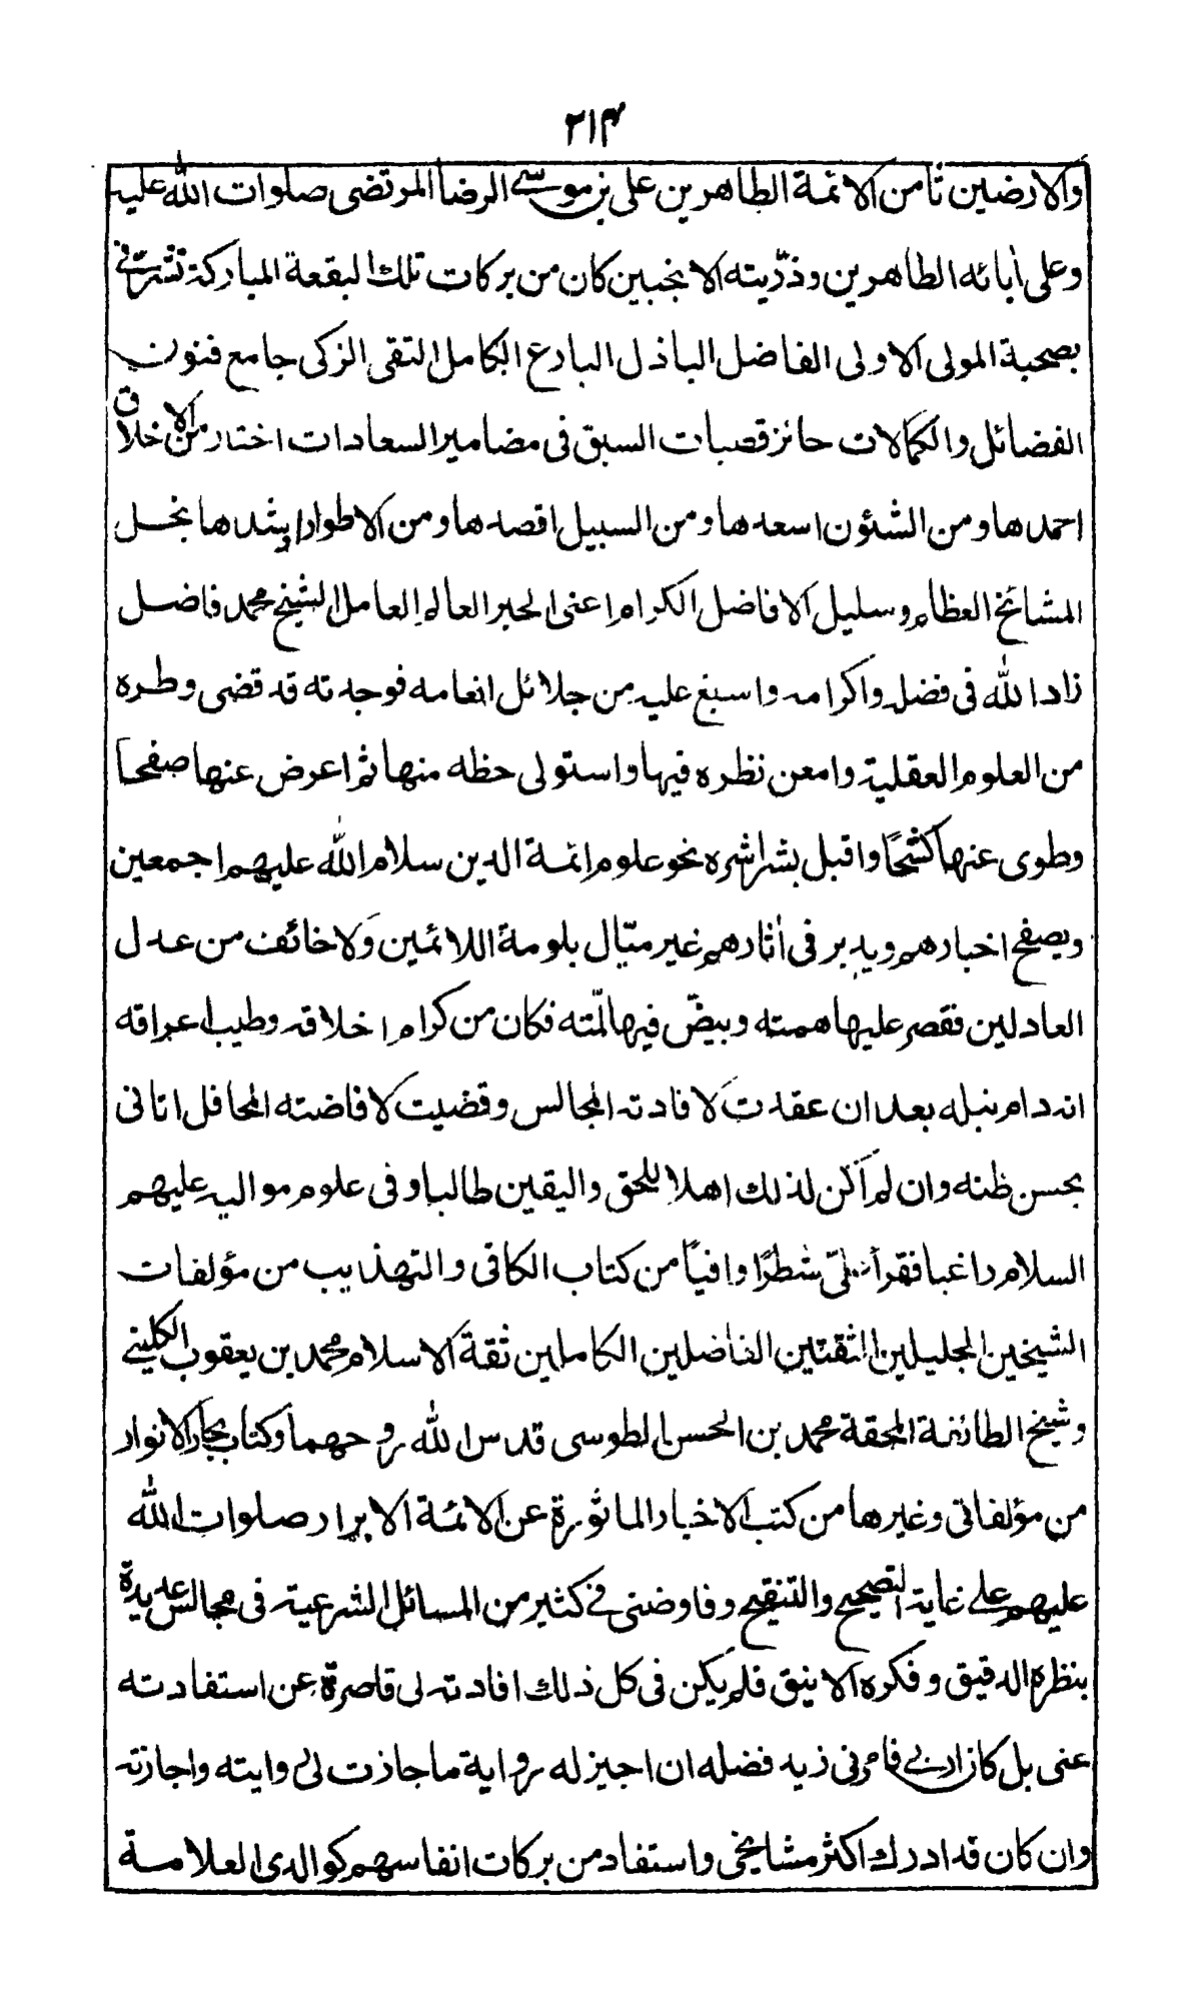 ٢١٤
والارضين ثامن الائمة الطاهرين على بن موسى الرضا المرتضى صلوات الله عليه
وعلى اٰبائه الطاهرين وذرّيته الانجبين كان من بركات تلك البقعة المباركة تشرّفى
بصحبة المولى الاولى الفاضل الباذل البارع الكامل التقى الزكى جامع فنون
الفضائل والكمالات حائز قصبات السبق فى مضامير السعادات اختار من الاخلاق
احمدها ومن الشئون اسعدها ومن السبيل اقصدها ومن الاطوار ارشدها نجل
المشائخ العظام وسليل الافاضل الكرام اعنى الحبر العالم العامل الشيخ محمد فاضل
زاد الله فى فضله واكرامه واسبغ عليه من جلائل انعامه فوجدته قد قضى وطره
من العلوم العقلية وامعن نظره فيها واستولى حظه منها ثم اعرض عنها صفحا
وطوى عنها كشحًا واقبل بشراشره نحو علوم ائمة الدين سلام الله عليهم اجمعين
ويصفح اخبارهم ويدبر فى اٰثارهم غير ميّال بلومة اللائمين ولا خائف من عدل
العادلين فقصر عليها همته وبيضّ فيها لمّته فكان من كرام اخلاقه وطيب اعراقه
انه دام نبله بعد ان عقدت لافادته المجالس وقضيت لافاضته المحافل اتانى
بحسن ظنه وان لم أكن لذلك اهلا للحق واليقين طالبا وفى علوم مواليه عليهم
السلام راغبا فقرأ علىّ شطرًا وافيًا من كتاب الكافى والتهذيب من مؤلفات
الشيخين الجليلين الثقتين الفاضلين الكاملين ثقة الاسلام محمد بن يعقوب الكلينى
وشيخ الطائفة المحقة محمد بن الحسن الطوسى قدس الله روحهما وكتاب بحار الانوار
من مؤلفاتى وغيرها من كتب الاخبار الماثورة عن الائمة الابرار صلوات الله
عليهم على غاية التصحيح والتنقيح وفاوضنى فى كثير من المسائل الشرعية فى مجالس عديدة
بنظره الدقيق وفكره الانيق فلم يكن فى كل ذلك افادته لى قاصرة عن استفادته
عنى بل كان اربى فامرنى زيد فضله ان اجيز له رواية ما جازت لى روايته واجازته
وان كان قد ادرك اكثر مشايخى واستفاد من بركات انفاسهم كوالدى العلامة